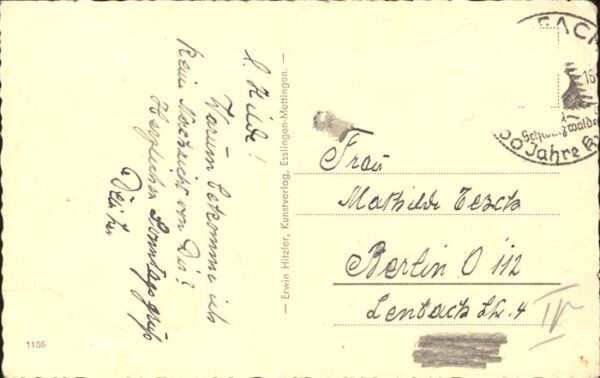 l. Hilde!
Warum bekomme ich
kein Nachricht von Dir?
Herzlichen Sonntagsgruß
— Erwin Hitzler, Kunstverlag, Esslingen-Mettingen. —
Frau
Mathilde Tesch
Berlin O 112
Lenbach Str. 4
IV
1156
ACH
16
Schwarzwald
Jahre